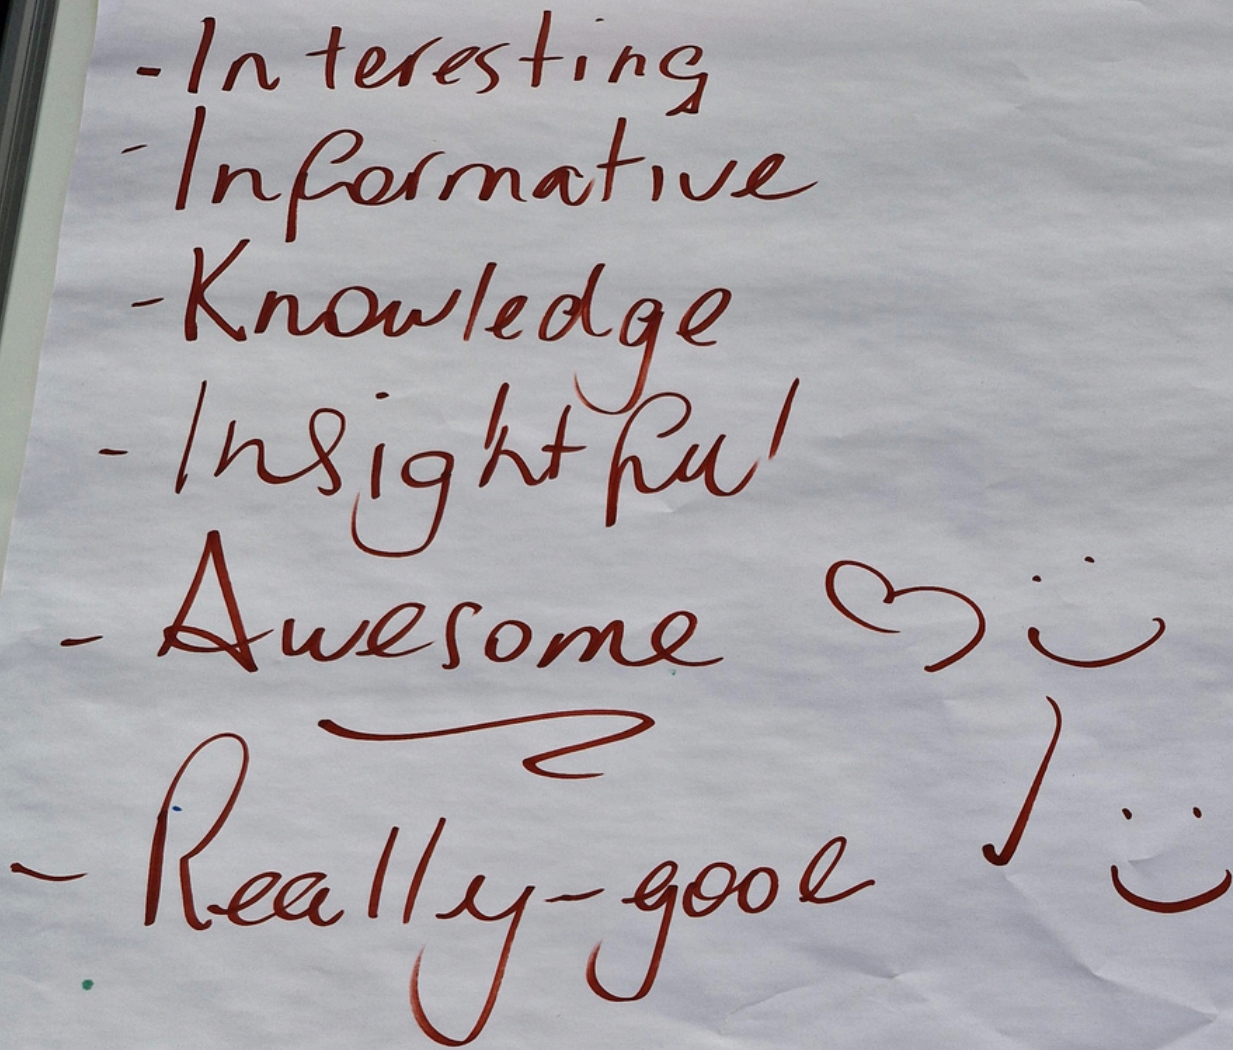 - Interesting
- Informative
- Knowledge
- Insightful
- Awesome ♡ ¨‿
- Really-good ! ¨‿